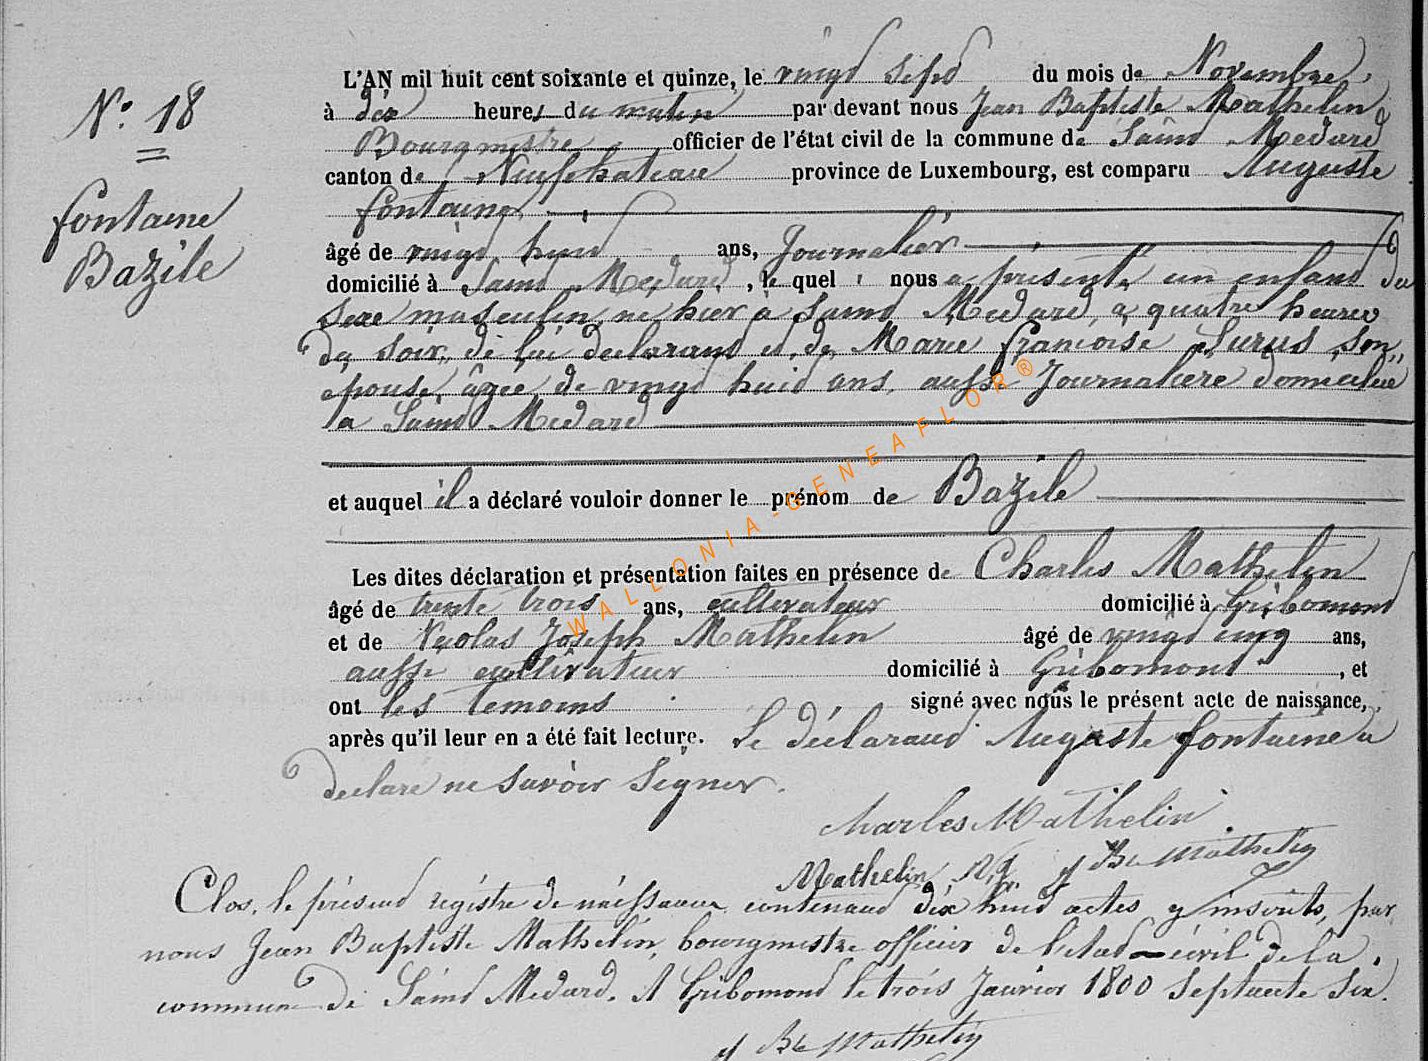 N° 18
fontaine
Bazile
L'AN mil huit cent soixante et quinze, le vingt sept du mois de Novembre,
à dix heures du matin par devant nous Jean Baptiste Mathelin
Bourgmestre officier de l'état civil de la commune de Saint Medard
canton de Neufchateau province de Luxembourg, est comparu Auguste
fontaine
âgé de vingt huit ans, Journalier
domicilié à Saint Medard, le quel nous a présenté un enfant du
sexe masculin né hier à Saint Medard, à quatre heures
du soir, de lui declarant et de Marie françoise Surus son
epouse, âgée de vingt huit ans, aussi Journaliere domiciliée
a Saint Medard
et auquel il a déclaré vouloir donner le prénom de Bazile
Les dites déclaration et présentation faites en présence de Charles Mathelin
âgé de trente trois ans, cultivateur domicilié à Gribomont
et de Nicolas Joseph Mathelin âgé de vingt cinq ans,
aussi cultivateur domicilié à Gribomont, et
ont les temoins signé avec nous le présent acte de naissance,
après qu'il leur en a été fait lecture. Le déclarant Auguste fontaine a
declaré ne savoir signer.
Charles Mathelin
Mathelin, N, J. J Bte Mathelin
Clos, le présent régistre de naissance contenant dix huit actes y inscrits, par
nous Jean Baptiste Mathelin, bourgmestre officier de l'état-civil de la
commune de Saint Medard. A Gribomont le trois Janvier 1800 Septante Six.
J Bte Mathelin
WALLONIA-GENEAFLOR®